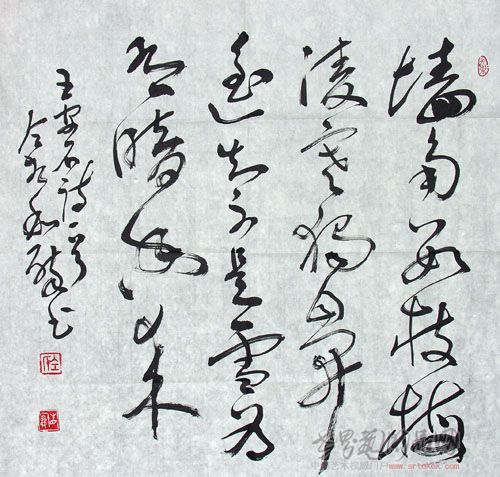 墙角数枝梅
凌寒独自开
遥知不是雪为
有暗香来
王安石诗一首